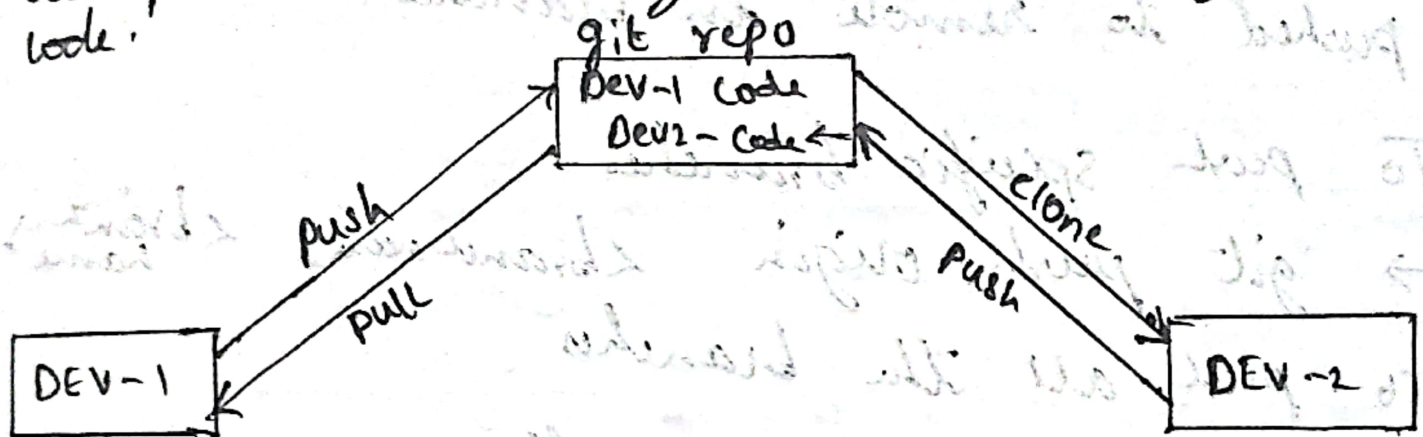 code.
git repo
Dev-1 Code
Dev2-Code
push
pull
clone
Push
DEV-1
DEV-2